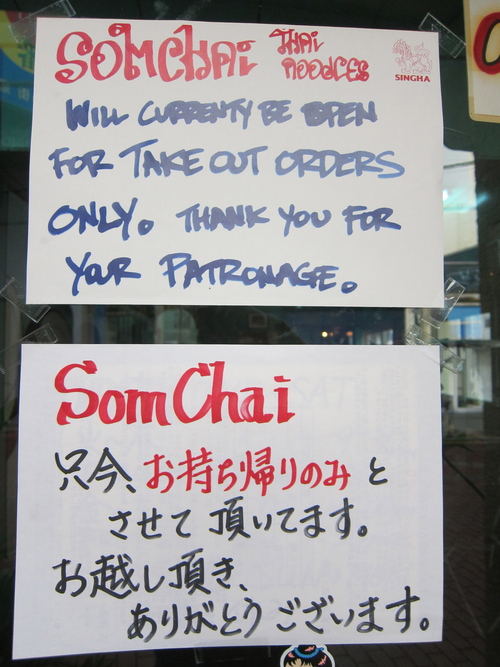 SOMCHAI THAI NOODLES
SINGHA
WILL CURRENTY BE OPEN
FOR TAKE OUT ORDERS
ONLY. THANK YOU FOR
YOUR PATRONAGE.
SomChai
只今、お持ち帰りのみと
させて頂いてます。
お越し頂き、
ありがとうございます。